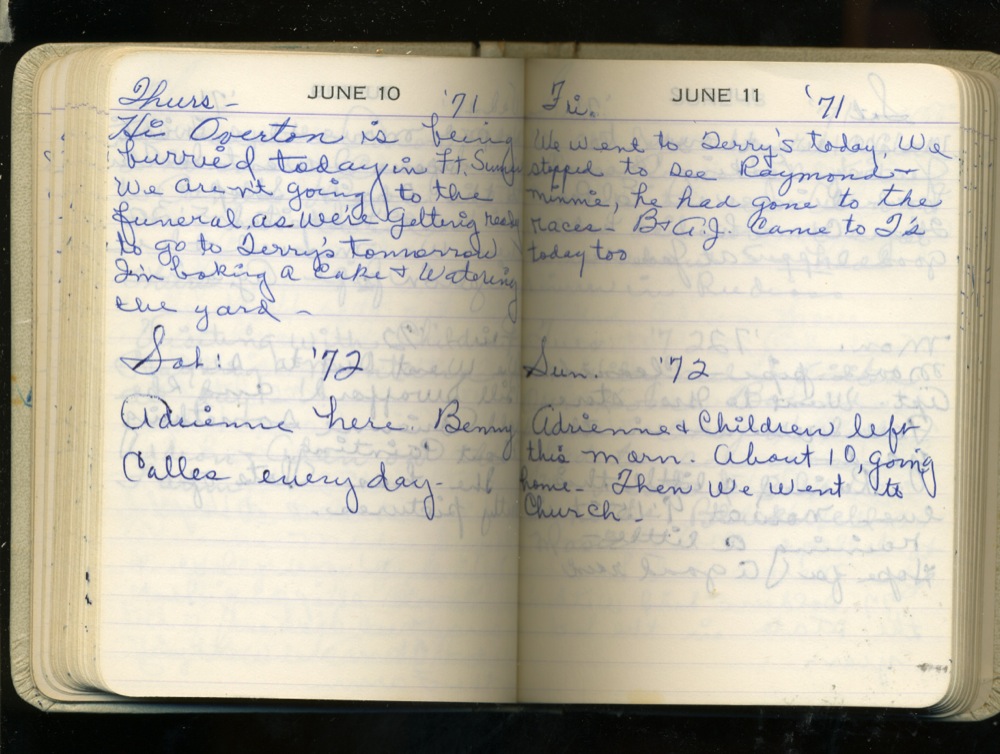 JUNE 10
Thurs- '71
Hi Overton is being
burried today in Ft. Sumner
We aren't going to the
funeral as we're getting ready
to go to Terry's tomorrow
I'm baking a Cake & Watering
the yard -
Sat: '72
Adrienne here. Benny
Calles every day-
JUNE 11
Fri. '71
We went to Terry's today. We
stopped to see Raymond &
Minnie, he had gone to the
races - B & A.J. Came to T's
today too
Sun. '72
Adrienne & Children left
this morn. About 10, going
home - Then we went to
Church -